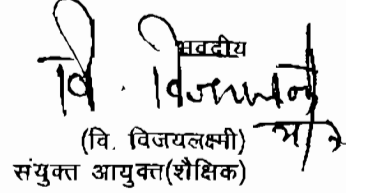 भवदीय
वि. विजयलक्ष्मी
(वि. विजयलक्ष्मी)
संयुक्त आयुक्त(शैक्षिक)